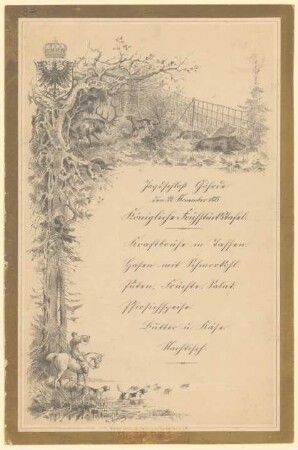 Jagdschloß Göhrde
den 22 November
Königliche Frühstückstafel.
Kraftbrühe in Tassen
Hasen mit Schmorkohl
Puten, Früchte, Salat
Butter u. Käse
Nachtisch.